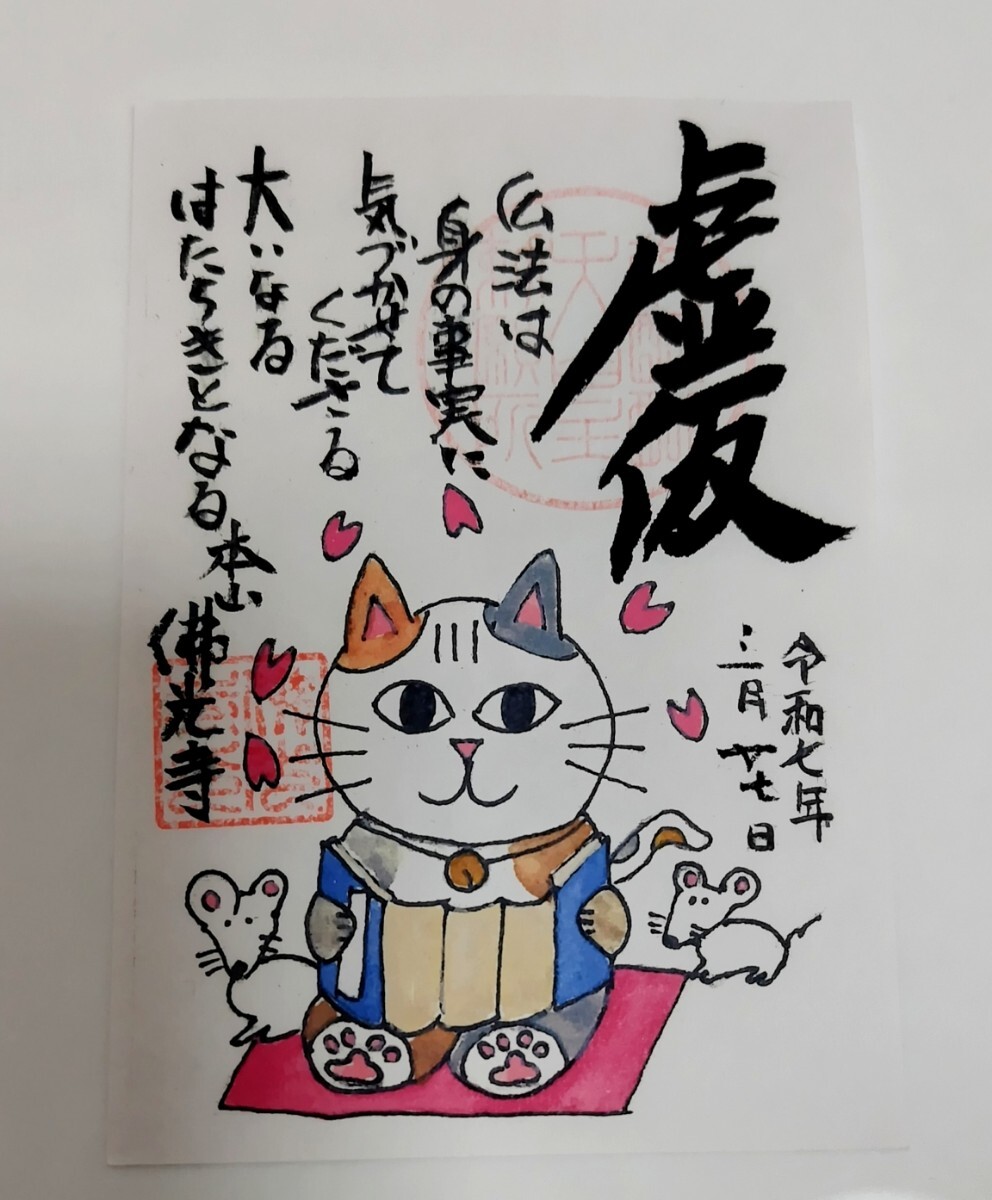 虚仮
令和七年
三月廿七日
仏法は
身の事実に
気づかせて
くださる
大いなる
はたらきとなる
本山
佛光寺